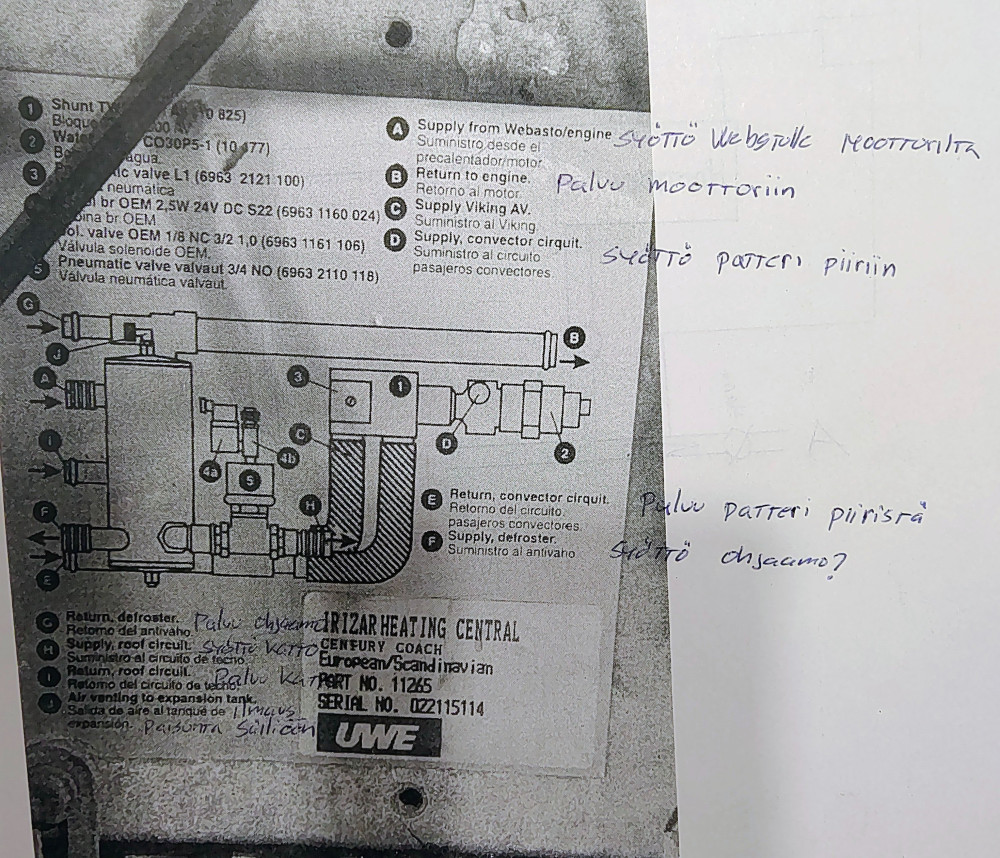 1 Shunt
0 825)
Bloque
2 Wate CO30P5-1 (10 477)
agua.
3 ic valve L1 (6963 2121 100)
neumática
br OEM 2,5W 24V DC S22 (6963 1160 024)
bina br OEM
ol. valve OEM 1/8 NC 3/2 1,0 (6963 1161 106)
Válvula solenoide OEM.
5 Pneumatic valve valvaut 3/4 NO (6963 2110 118)
Válvula neumática valvaut.
A Supply from Webasto/engine
Suministro desde el
precalentador/motor.
SYÖTTÖ MOOTTORILTA
B Return to engine.
Retorno al motor.
Paluu moottoriin
C Supply Viking AV.
Suministro al Viking
D Supply, convector cirquit.
Suministro al circuito
pasajeros convectores.
SYÖTTÖ patteri piiriin
G
J
A
I
F
E
B
3
1
C
D
2
4a
4b
5
H
E Return, convector cirquit.
Retorno del circuito
pasajeros convectores.
Paluu patteri piiristä
F Supply, defroster.
Suministro al antivaho
SYÖTTÖ ohjaamo?
G Return, defroster. Paluu ohjaamo
Retorno del antivaho.
H Supply, roof circuit. SYÖTTÖ KATTO
Suministro al circuito de tecno.
I Return, roof circuit. Paluu
Retorno del circuito de techo.
J Air venting to expansion tank.
Salida de aire al tanque de ilmaus
expansión. Paisunta säiliöön
IRIZAR HEATING CENTRAL
CENTURY COACH
European/Scandinavian
PART NO. 11265
SERIAL NO. 022115114
UWE
A